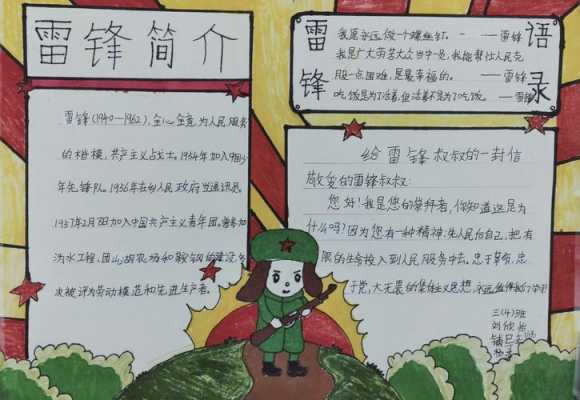 雷锋简介
雷锋(1940—1962),全心全意为人民服务
的楷模,共产主义战士。1954年加入中国少
年先锋队。1956年在乡人民政府当通讯员。
1957年2月8日加入中国共产主义青年团。曾参加
沩水工程,团山湖农场和鞍钢的建设,多
次被评为劳动模范和先进生产者。
雷锋语录
我是永远做个螺丝钉。——雷锋
我是广大劳苦大众当中一员,我能帮忙人民克
服一点困难,是最幸福的。——雷锋
吃饭是为了活着,但活着不是为了吃饭。——雷锋
给雷锋叔叔的一封信
敬爱的雷锋叔叔:
您好!我是您的崇拜者,你知道这是为
什么吗?因为您有一种精神:先人后自己,把有
限的生命投入到人民服务中去。忠于革命,忠
于党,大无畏的集体主义思想,永远值得我们学习
三(4)班
刘欣